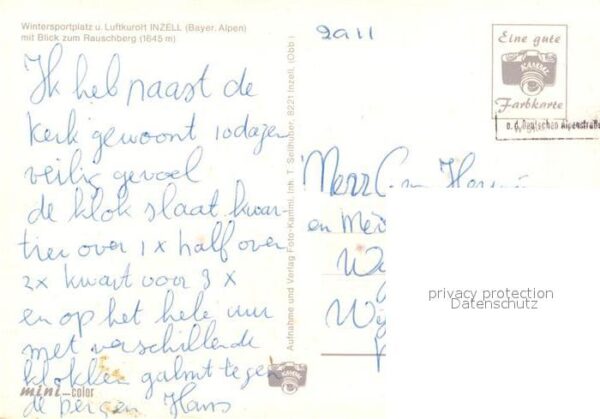 Wintersportplatz u. Luftkurort INZELL (Bayer. Alpen)
mit Blick zum Rauschberg (1645 m)
Ik heb naast de
kerk gewoont 10 dagen
veilig gevoel
de klok slaat kwar-
tier over 1x half over
2x kwart voor 3x
en op het hele uur
met verschillende
klokken galmt tegen
de bergen Hans
mini-color
Aufnahme und Verlag Foto-Kammi, Inh. T. Seilhuber, 8221 Inzell, (Obb)
2911
Eine gute
KAMMI
Farbkarte
a. d. Deutschen Alpenstraße
en
privacy protection
Datenschutz